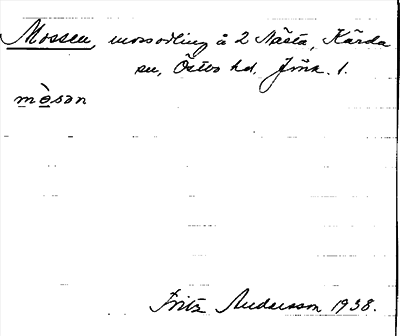 Mossen, mossodling å 2 Nästa, Kärda
sn, Östbo hd, Jönk. l.
mòsan
Fritz Andersson 1938.